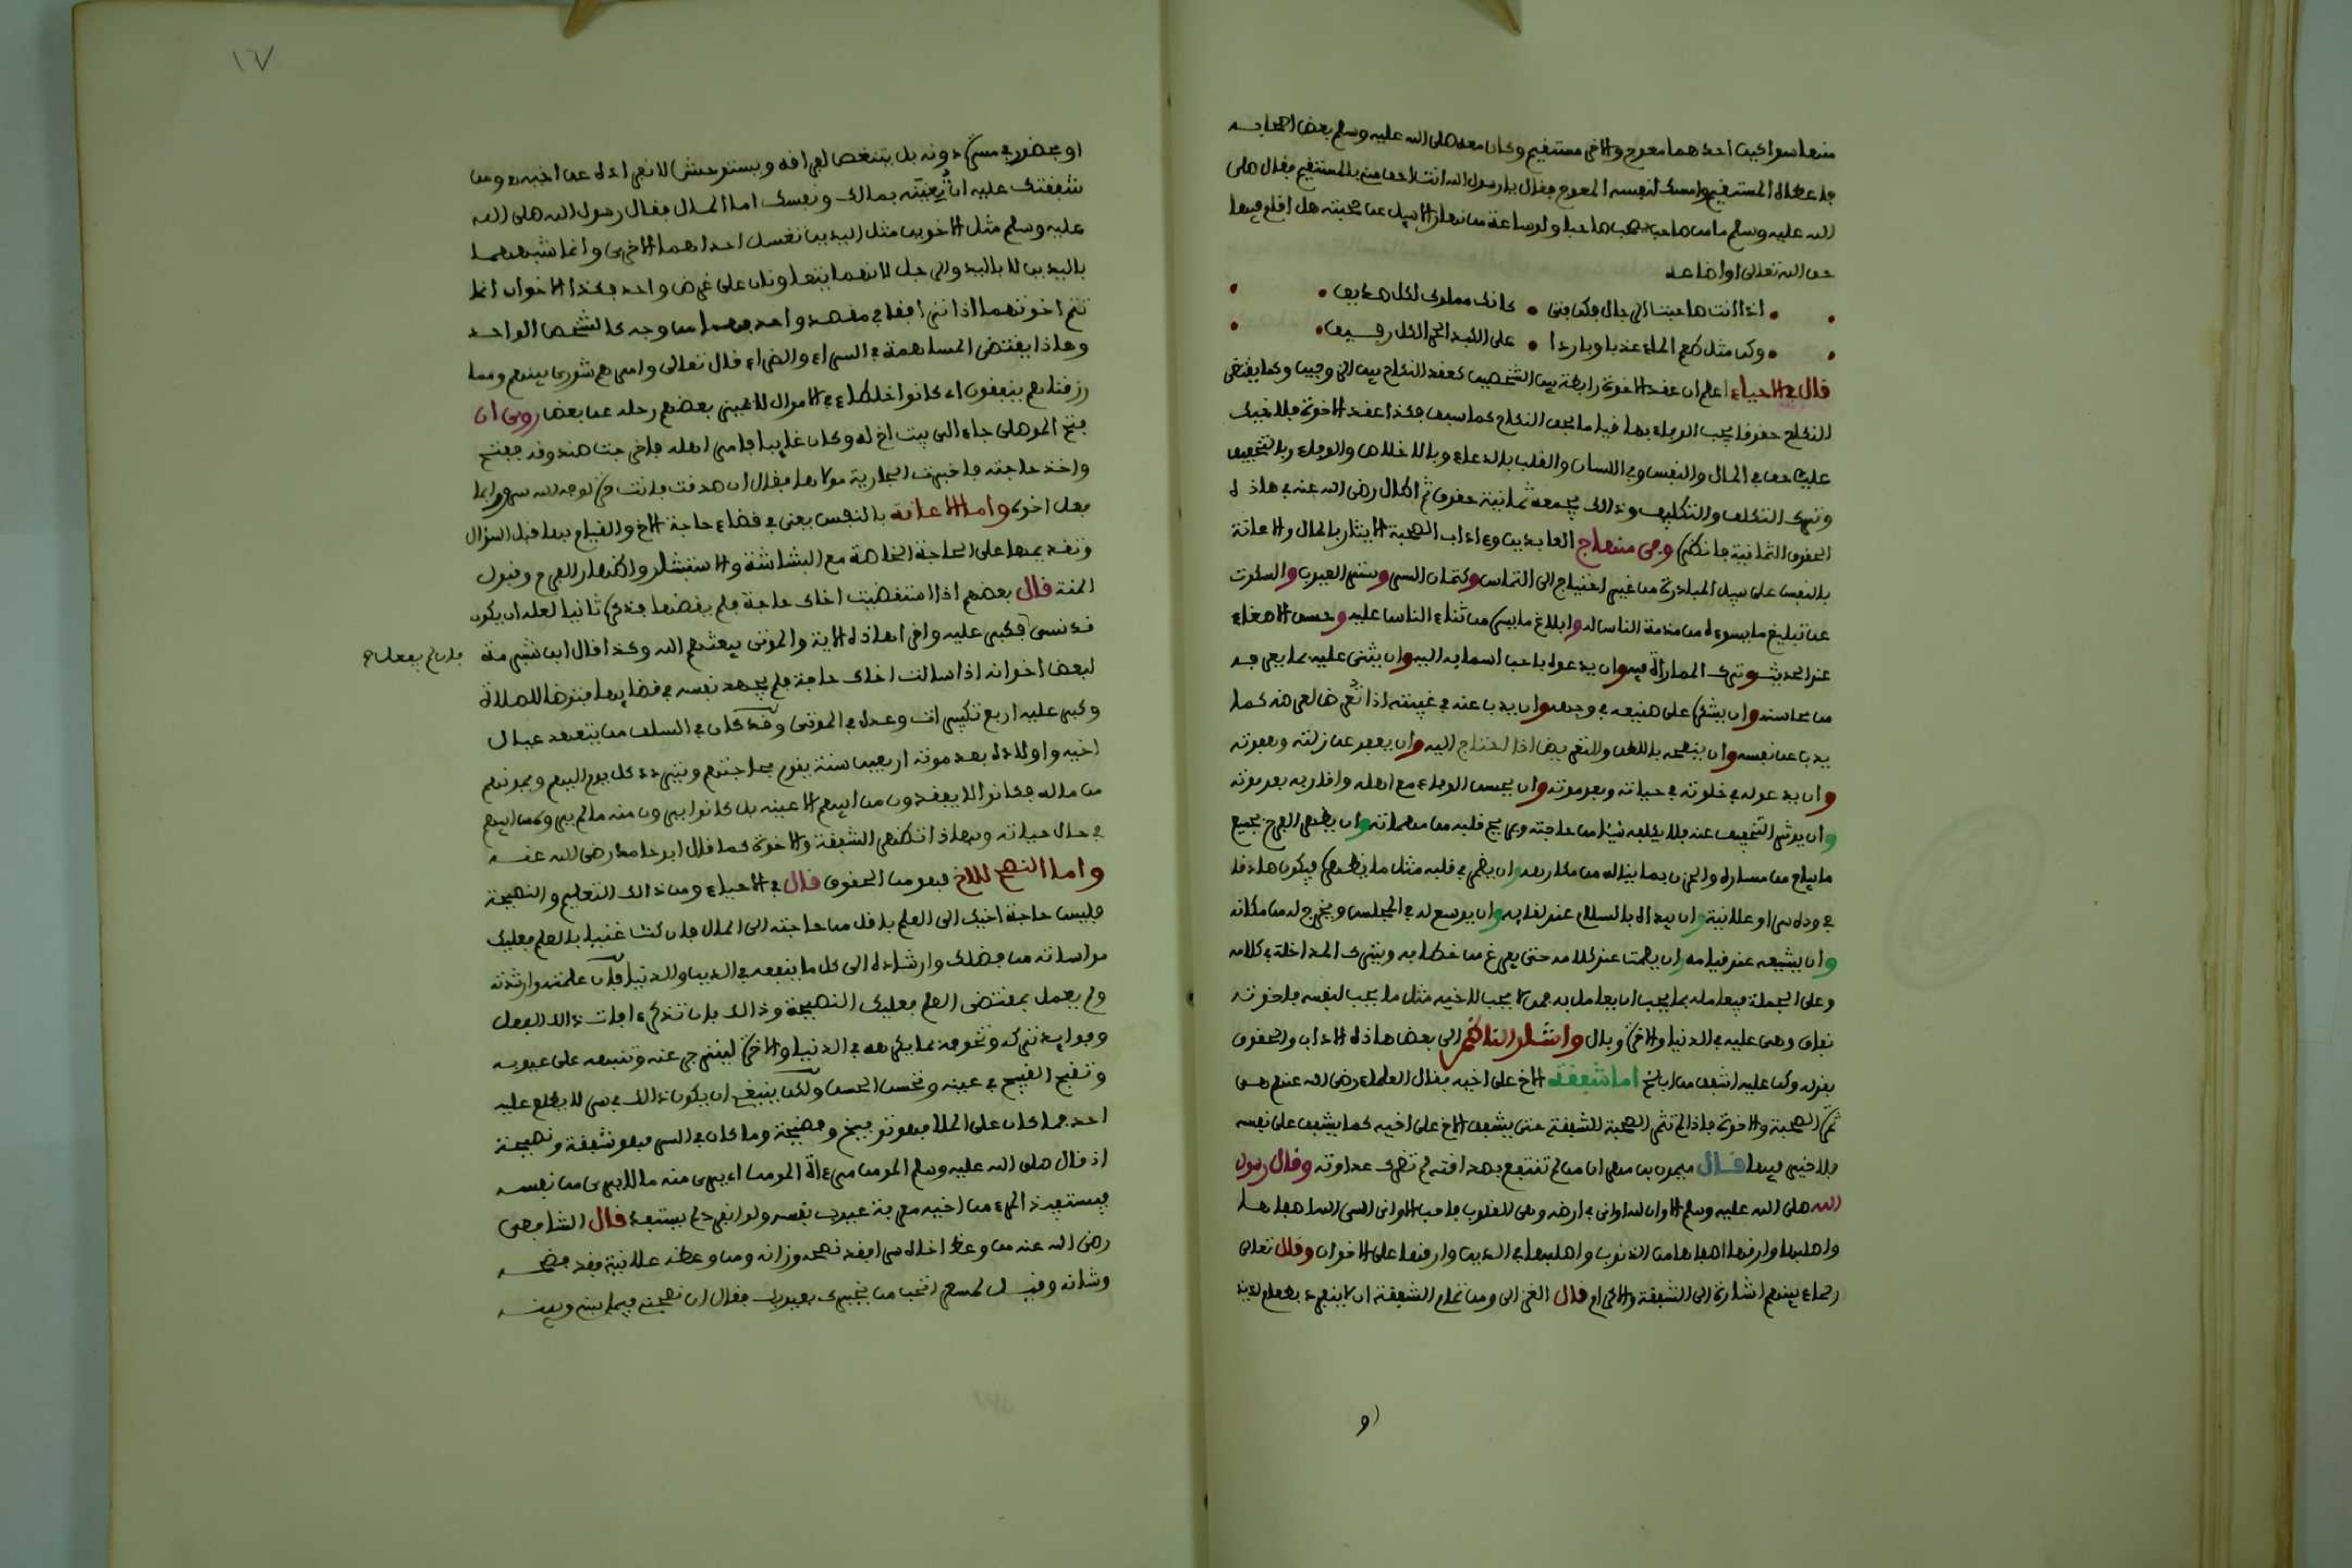 منها سواكين احدهما معوج والاخر مستقيم وكان معه صلى الله عليه وسلم بعض اصحابه
فاعطاه المستقيم وامسك لنفسه المعوج فقال يا رسول الله انت احق مني بالمستقيم فقال صلى
الله عليه وسلم ما من صاحب يصحب صاحبا ولو ساعة من نهار الا سيل عن صحبته هل اقام فيها
حق الله تعالى او اضاعه
اذا انت صاحبت الرجال فكن فتى • كانك مملوك لكل صديق
وكن مثل طعم الماء عذبا وباردا • على الكبد الحرا لكل رفيق
قال في الاحياء اعلم ان عقد الاخوة رابطة بين الشخصين كعقد النكاح بين الزوجين وكما يقتضي
النكاح حقوقا يجب الوفاء بها قياما بحق النكاح كما سبق فكذا عقد الاخوة فلاخيك
عليك حق في المال والنفس وفي اللسان والقلب بالدعاء وبالاخلاص والوفاء وبالتخفيف
وترك التكلف والتكليف وذالك يجمعه ثمانية حقوق ثم اطال رضي الله عنه في هاذه
الحقوق الثمانية فانظره وفي منهاج العابدين وءاداب الصحبة الايثار بالمال والاعانة
بالنفس على سبيل المبادرة من غير احتياج الى التماس وكتمان السر وستر العيوب والسكوت
عن تبليغ ما يسوءه من مذمة الناس له وابلاغ ما يسره من ثناء الناس عليه وحسن الاصغاء
عند الحديث وترك المماراة فيه وان يدعوه باحب اسمايه اليه وان يثني عليه بما يعرفه
من محاسنه وان يشكره على صنيعه في وجهه وان يذب عنه في غيبته اذا تعرض لعرضه كما
يذب عن نفسه وان ينصحه باللطف والتعريض اذا احتاج اليه وان يعفو عن زلته وهفوته
وان يدعو له في خلوته في حياته وبعد موته وان يحسن الوفاء مع اهله واقاربه بعد موته
وان يوثر التخفيف عنه فلا يكلفه شيئا من حاجته ويروح قلبه من مهماته وان يظهر الفرح بجميع
ما يتاح من مساره والحزن بما يناله من مكارهه وان يضمر في قلبه مثل ما يظهره فيكون صادقا
في وده سرا وعلانية وان يبداه بالسلام عند لقايه وان يوسع له في المجلس ويخرج له من مكانه
وان يشيعه عند قيامه وان يصمت عند كلامه حتى يفرغ من خطابه ويترك المداخلة في كلامه
وعلى الجملة فيعامله بما يحب ان يعامل به فمن لا يحب لاخيه مثل ما يحب لنفسه فاخوته
نفاق وهي عليه في الدنيا والاخرة وبال واشار الناظم الى بعض هاذه الاداب والحقوق
بقوله وكن عليه اشفق من اب اخ اما شفقة الاخ على اخيه فقال العلماء رضي الله عنهم هي
ثمرة الصحبة والاخوة فاذا لم تثمر الصحبة الشفقة حتى يشفق الاخ على اخيه كما يشفق على نفسه
فلا خير فيها قال ميمون بن مهران من لم تنتفع بصداقته لم تضرك عداوته وقال رسول
الله صلى الله عليه وسلم الا وان لله اواني في ارضه وهي القلوب فاحب الاواني الى الله اصفاها
واصلبها وارقها اصفاها من الذنوب واصلبها في الدين وارقها على الاخوان وقال تعالى
رحماء بينهم اشارة الى الشفقة والاكرام قال الغزالي ومن تمام الشفقة ان لا ينفرد بطعام لذيذ
(و
١٧
او بحضور في مسرة دونه بل يتنغص لفراقه ويستوحش لانفراده عن اخيه ومن
شفقتك عليه ان تُعِينَه بمالك ونفسك اما المال فقال رسول الله صلى الله
عليه وسلم مثل الاخوين مثل اليدين تغسل احداهما الاخرى وانما شبههما
باليدين لا باليد والرجل لانهما يتعاونان على غرض واحد فكذا الاخوان انما
تتم اخوتهما اذا ترافقا في مقصد واحد فهما من وجه كالشخص الواحد
وهاذا يقتضي المساهمة في السراء والضراء قال تعالى وامرهم شورى بينهم ومما
رزقناهم ينفقون اي كانوا خلطاء في الاموال لا يميز بعضهم رحله عن بعض روي ان
فتح الموصلي جاء الى بيت اخ له وكان غايبا فامر اهله فاخرجت صندوقه ففتح
واخذ حاجته فاخبرت الجارية مولاها فقال ان صدقت فانت حرة لوجه الله سرورا بما
فعل اخوه واما الاعانة بالنفس يعني في قضاء حاجة الاخ والقيام بها قبل السؤال
وتقديمها على الحاجة الخاصة مع البشاشة والاستبشار واظهار الفرح وقبول
المنة قال بعضهم اذا استقضيت اخاك حاجة فلم يقضها فذكره ثانيا لعله ان يكون
قد نسي فكبر عليه واقرا هاذه الاية والموتى يبعثهم الله وكذا قال ابن شبرمة
فان لم يفعل صح
لبعض اخوانه اذا سالت اخاك حاجة فلم يجهد نفسه في قضايها فتوضا للصلاة
وكبر عليه اربع تكبيرات وعده في الموتى وقد كان في السلف من يتفقد عيال
اخيه واولاده بعد موته اربعين سنة يقوم بحاجتهم ويتردد كل يوم اليهم ويمونهم
من ماله فكانوا لا يفقدون من ابيهم الا عينه بل كانوا يرون منه ما لم يروه من ابيهم
في حال حياته وبهاذا تظهر الشفقة والاخوة كما قال ابو حامد رضي الله عنه
واما النصح للاخ فهو من الحقوق قال في الاحياء ومن ذالك التعليم والنصيحة
فليس حاجة اخيك الى العلم باقل من حاجته الى المال فان كنت غنيا بالعلم فعليك
مواساته من فضلك وارشاده الى كل ما ينفعه في الدين والدنيا فان علمته وارشدته
ولم يعمل بمقتضى العلم فعليك النصيحة وذالك بان تذكره ءافات ذالك الفعل
وفوايد تركه وتخوفه بما يكرهه في الدنيا والاخرة لينزجر عنه وتنبهه على عيوبه
وتقبح القبيح في عينه وتحسن الحسن ولكن ينبغي ان يكون ذالك في سر لا يطلع عليه
احد فما كان على الملا فهو توبيخ وفضيحة وما كان في السر فهو شفقة ونصيحة
اذ قال صلى الله عليه وسلم المومن مرءاة المومن اي يرى منه ما لا يرى من نفسه
فيستفيد المرء من اخيه معرفة عيوب نفسه ولو انفرد لم يستفد قال الشافعي
رضي الله عنه من وعظ اخاه سرا فقد نصحه وزانه ومن وعظه علانية فقد فضحه
وشانه وقيل لمسعر اتحب من يخبرك بعيوبك فقال ان نصحني فيما بيني وبينه